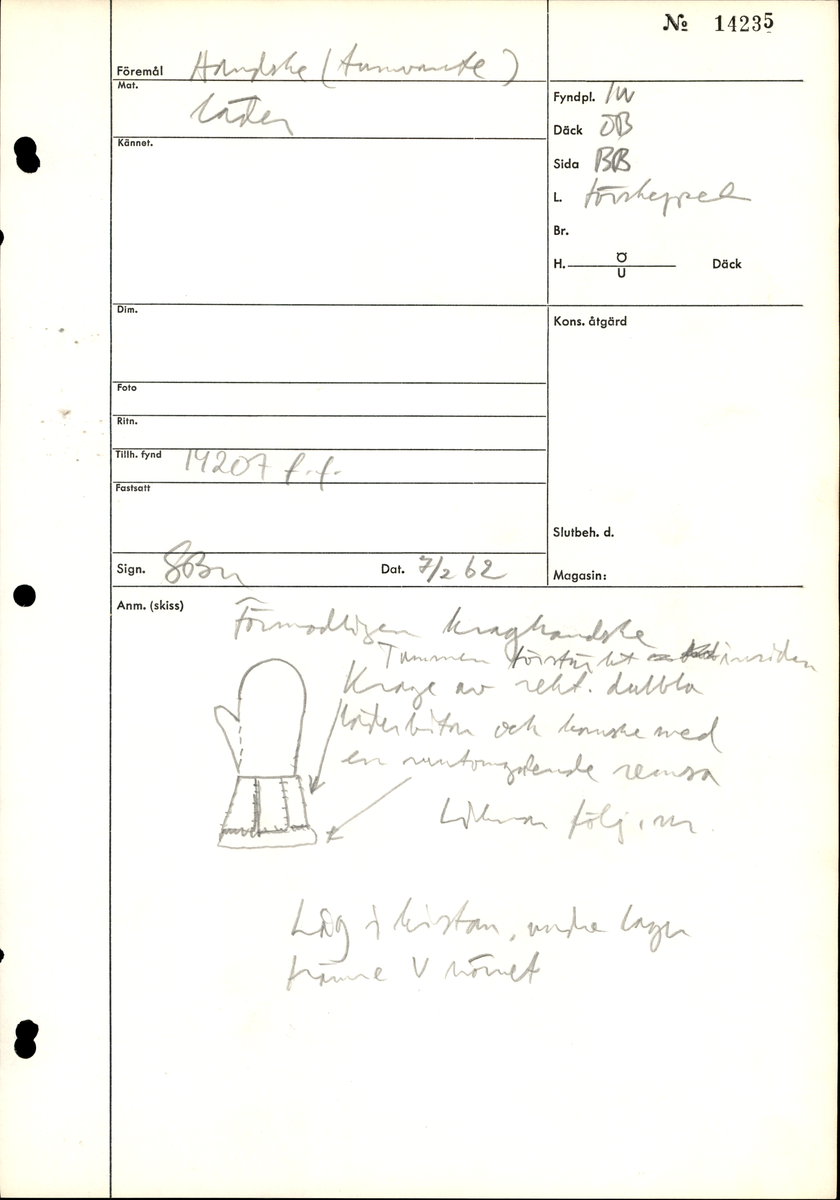 № 14235
Föremål Handske (tumvante)
Mat. läder
Kännet.
Fyndpl. IW
Däck ÖB
Sida BB
L. förskeppet
Br.
H. Ö U Däck
Dim.
Kons. åtgärd
Foto
Ritn.
Tillh. fynd 14207 f.f.
Fastsatt
Slutbeh. d.
Sign. Dat. 7/2 62
Magasin:
Anm. (skiss)
Förmodligen kraghandske
Tummen förstärkt insidan
Krage av rekt. dubbla
läderbitar och kanske med
en runtomgående remsa
Liknar följ. nr
Låg i kistan, undre lager
främre V hörnet